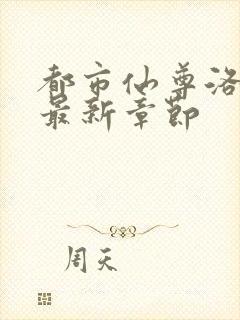 都市仙尊洛
最新章节
周天